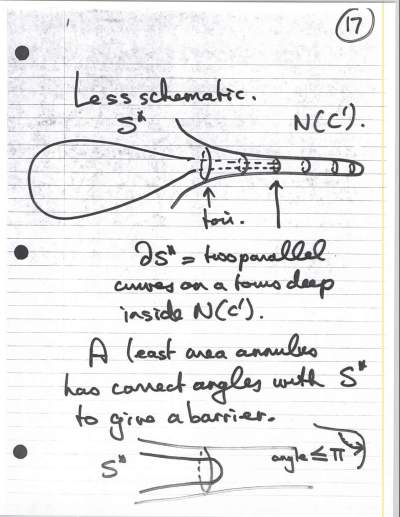 17
Less schematic.
S* N(C').
tori.
∂S* = two parallel
curves on a torus deep
inside N(C').
A least area annulus
has correct angles with S*
to give a barrier.
S* angle ≤ π